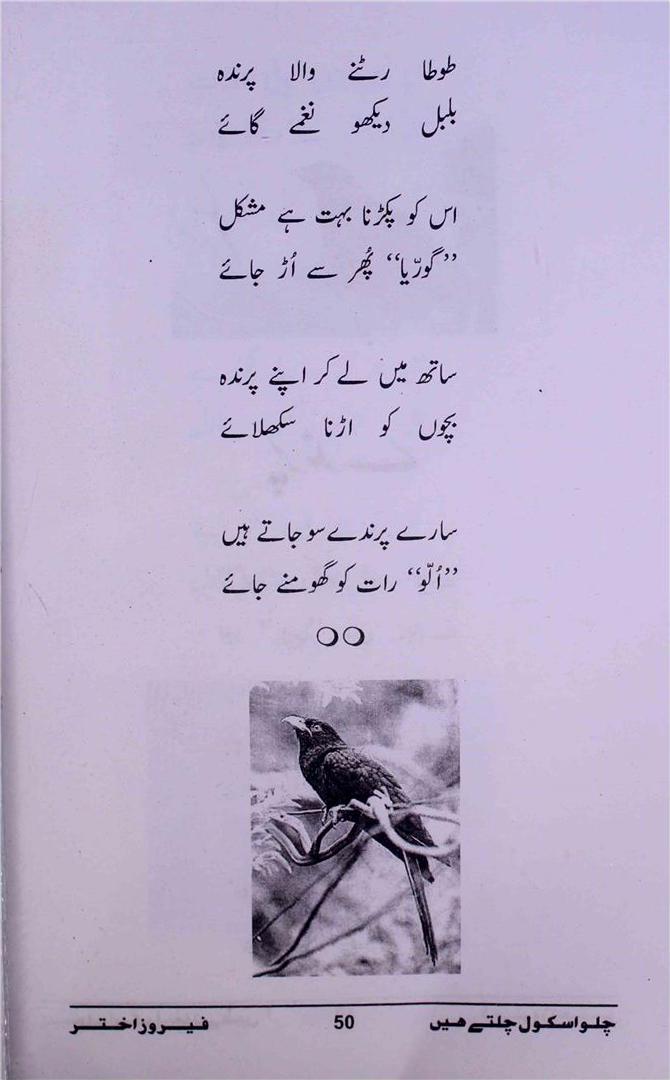 طوطا رٹنے والا پرندہ
بلبل دیکھو نغمے گائے
اس کو پکڑنا بہت ہے مشکل
”گوریّا“ پُھر سے اُڑ جائے
ساتھ میں لے کر اپنے پرندہ
بچوں کو اڑنا سکھلائے
سارے پرندے سو جاتے ہیں
”اُلّو“ رات کو گھومنے جائے
چلو اسکول چلتے ہیں 50 فیروز اختر